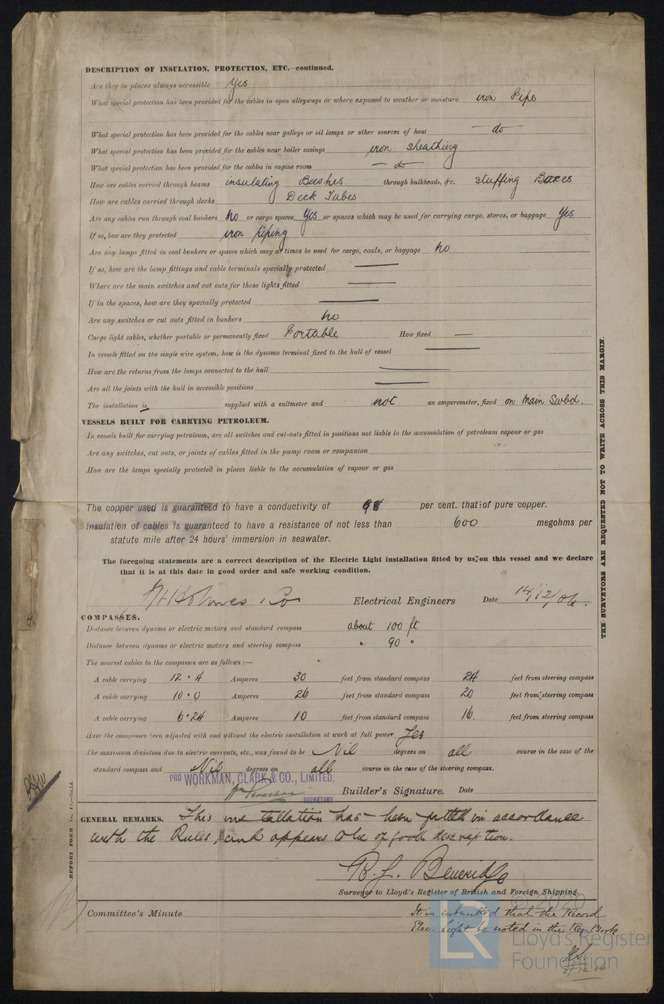 DESCRIPTION OF INSULATION, PROTECTION, ETC.—continued.
Are they in places always accessible Yes
What special protection has been provided for the cables in open alleyways or where exposed to weather or moisture iron Pipe
What special protection has been provided for the cables near galleys or oil lamps or other sources of heat — do —
What special protection has been provided for the cables near boiler casings iron sheathing
What special protection has been provided for the cables in engine room — do —
How are cables carried through beams insulating Bushes through bulkheads, &c. stuffing Boxes
How are cables carried through decks Deck Tubes
Are any cables run through coal bunkers no or cargo spaces Yes or spaces which may be used for carrying cargo, stores, or baggage Yes
If so, how are they protected iron piping
Are any lamps fitted in coal bunkers or spaces which may at times be used for cargo, coals, or baggage no
If so, how are the lamp fittings and cable terminals specially protected —
Where are the main switches and cut outs for these lights fitted —
If in the spaces, how are they specially protected —
Are any switches or cut outs fitted in bunkers no
Cargo light cables, whether portable or permanently fixed Portable How fixed —
In vessels fitted on the single wire system, how is the dynamo terminal fixed to the hull of vessel —
How are the returns from the lamps connected to the hull —
Are all the joints with the hull in accessible positions —
The installation is supplied with a voltmeter and not an amperemeter, fixed on Main Swbd.
VESSELS BUILT FOR CARRYING PETROLEUM.
In vessels built for carrying petroleum, are all switches and cut-outs fitted in positions not liable to the accumulation of petroleum vapour or gas
Are any switches, cut outs, or joints of cables fitted in the pump room or companion
How are the lamps specially protected in places liable to the accumulation of vapour or gas
The copper used is guaranteed to have a conductivity of 98 per cent. that of pure copper.
Insulation of cables is guaranteed to have a resistance of not less than 600 megohms per
statute mile after 24 hours' immersion in seawater.
The foregoing statements are a correct description of the Electric Light installation fitted by us on this vessel and we declare
that it is at this date in good order and safe working condition.
Holmes & Co Electrical Engineers Date 14/12/06.
COMPASSES.
Distance between dynamo or electric motors and standard compass about 100 ft
Distance between dynamo or electric motors and steering compass " 90 "
The nearest cables to the compasses are as follows:—
A cable carrying 12.4 Amperes 30 feet from standard compass 24 feet from steering compass
A cable carrying 10.0 Amperes 26 feet from standard compass 20 feet from steering compass
A cable carrying 6.24 Amperes 10 feet from standard compass 16 feet from steering compass
Have the compasses been adjusted with and without the electric installation at work at full power Yes
The maximum deviation due to electric currents, etc., was found to be Nil degrees on all course in the case of the
standard compass and Nil degrees on all course in the case of the steering compass.
PRO WORKMAN, CLARK & CO., LIMITED,
SECRETARY
Builder's Signature. Date
GENERAL REMARKS. This installation has been fitted in accordance
with the Rules, and appears to be of good description.
Surveyor to Lloyd's Register of British and Foreign Shipping
Committee's Minute
It is submitted that the Record
Elec Light be noted in the Reg Book
THE SURVEYORS ARE REQUESTED NOT TO WRITE ACROSS THIS MARGIN
LR
© 2020
Lloyd's Register
Foundation